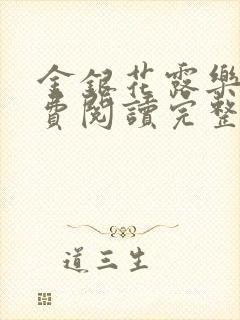 金銀花露樂
費閱讀完整
道三生